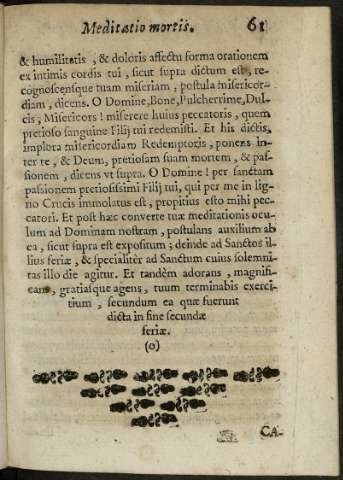 Meditatio mortis. 61
& humilitatis, & doloris affectu forma orationem
ex intimis cordis tui, sicut supra dictum est, re-
cognoscensque tuam miseriam, postula misericor-
diam, dicens. O Domine, Bone, Pulcherrime, Dul-
cis, Misericors! miserere huius peccatoris, quem
pretioso sanguine Filij tui redemisti. Et his dictis,
implora misericordiam Redemptoris, ponens in-
ter te, & Deum, pretiosam suam mortem, & pas-
sionem, dicens vt supra. O Domine! per sanctam
passionem pretiosissimi Filij tui, qui per me in lig-
no Crucis immolatus est, propitius esto mihi pec-
catori. Et post hæc converte tuæ meditationis ocu-
lum ad Dominam nostram, postulans auxilium ab
ea, sicut supra est expositum; deinde ad Sanctos il-
lius feriæ, & specialitèr ad Sanctum cuius solemni-
tas illo die agitur. Et tandèm adorans, magnifi-
cans, gratiasque agens, tuum terminabis exerci-
tium, secundum ea quæ fuerunt
dicta in fine secundæ
feriæ.
(o)
CA-